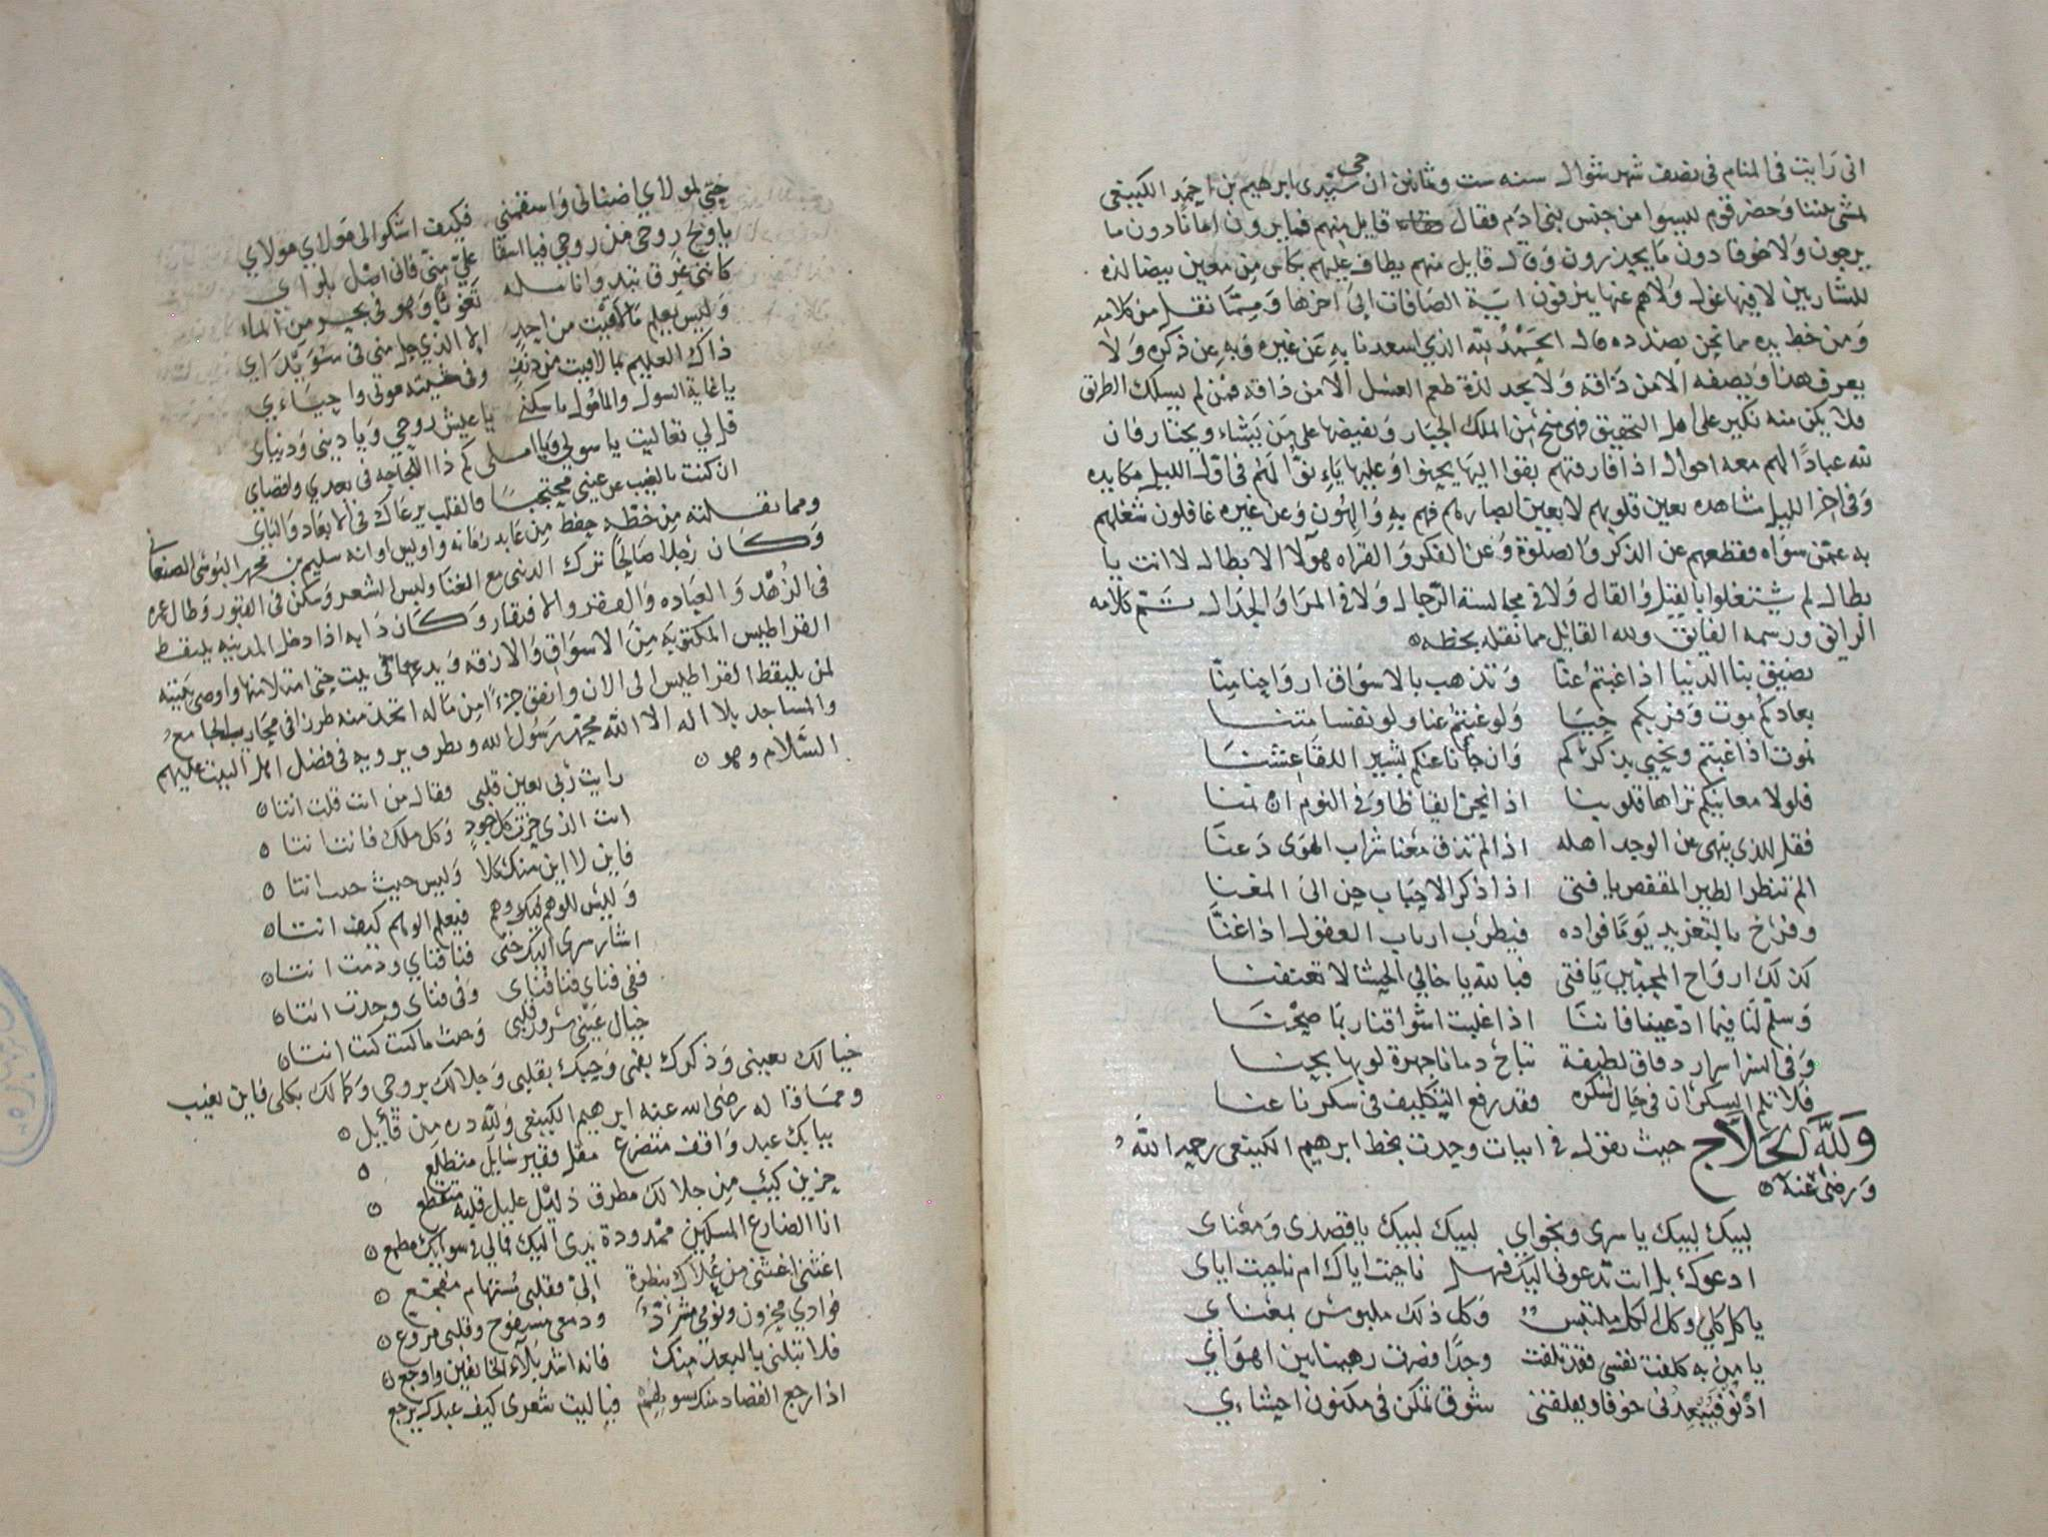 انى رايت فى المنام فى نصف شهر شوال سنه ست وثمانين ان سيدى ابرهيم بن احمد الكينعى
حى
لمشى عندنا وحضر قوم ليسوا من جنس بنى ادم فقال قايل منهم فما يرون امانا دون ما
يرجون ولا خوفا دون ما يحذرون وقال قايل منهم يطاف عليهم بكاس من معين بيضا لذه
للشاربين لا فيها غول ولا هم عنها ينزفون اية الصافات الى اخرها ومما نقل من كلامه
ومن خط يده مما نحن بصدده قال الحمد لله الذي اسعدنا به عن غيره وبه عن ذكره ولا
يعرف هذا ويصفه الا من ذاقه ولا يجد لذة طعم العسل الا من ذاقه فمن لم يسلك الطريق
فلا يكن منه نكير على اهل التحقيق فهى منح من الملك الجبار ويفيضها على من يشاء ويختار فان
لله عبادا لهم معه احوال اذا فارقتهم بقوا اليها يحنوا وعليها يانوا لهم فى اول الليل مكابده
وفى اخر الليل مشاهده بعين قلوبهم لا بعين ابصارهم فهم به والهون وعن غيره غافلون شغلهم
به عمن سواه فقطعهم عن الذكر والصلوة وعن الفكر والقراه هولا الابطال لا انت يا
بطال لم يشتغلوا بالقيل والقال ولا فى مجالسة الرجال ولا فى المرا والجدال تم كلامه
الرايق ورسمه الفايق ولله القائل مما نقله بخطه
تضيق بنا الدنيا اذا غبتم عنا وتذهب بالاشواق ارواحنا منا
بعادكم موت وقربكم حيا ولو غبتم عنا ولو نفسا متنا
نموت اذا غبتم ونحيى بذكركم وان جأنا عنكم بشير اللقا عشنا
فلولا معانيكم تراها قلوبنا اذا نحن ايقاظا وفى النوم ان نمنا
فقل للذى ينهى عن الوجد اهله اذا لم تذق معنا شراب الهوى دعنا
الم تنظر الطير المقفص يا فتى اذا ذكر الاحباب حن الى المغنا
وفرخ بالتغريد يوما فواده فيطرب ارباب العقول اذا غنا
كذلك ارواح المحبين يا فتى فبالله يا خالي الحشا لا تعنفنا
وسلم لنا فيما ادعينا فاننا اذا غلبت اشواقنا ربما صحنا
وفى السر اسرار دقاق لطيفة تباح دمانا جهرة لو بها بحنا
فلا تلم السكران فى حال سكره فقد رفع التكليف فى سكرنا عنا
ولله الحلاج حيث يقول فى ابيات وجدت بخط ابرهيم الكينعى رحمه الله
ورضى عنه
لبيك لبيك يا سرى ونجواي لبيك لبيك يا قصدى ومعناى
ادعوك بل انت تدعونى اليك فهل ناجيت اياك ام ناجيت اياى
يا كل كلي وكل الكل ملتبس وكل ذلك ملبوس بمعناي
يا من به كلفت نفسى فقد تلفت وجدا فصرت رهينا بين اهواي
ادنو فيبعدنى خوفا ويقلقنى شوق تمكن فى مكنون احشاءي
حبي لمولاي اضنانى واسقمني فكيف اشكوا الى مولاي مولاي
يا ويح روحى من روحي فيا اسفا علي منى فانى اصل بلواي
كاننى غرق تبدو انامله تغوثا وهو فى بحر من الماء
وليس يعلم ما لاقيت من احد الا الذي حل منى فى سويداى
ذاك العليم بما لاقيت من دنف وفى مشيته موتى واحياءي
يا غاية السول والمامول يا سكنى يا عيش روحي ويا دينى ودنياى
قل لي تعاليت يا سولى ويا املى كم ذا اللجاجه فى بعدي واقصاي
ان كنت بالغيب عن عيني محتجبا فالقلب يرعاك فى الابعاد والناي
ومما نقلته من خطه حفظ من عابد زمانه واويس اوانه سليم بن الصنعانى
وكان رجلا صالحا ترك الدنى مع الغنا ولبس الشعر وسكن فى القبور وطال عمره
فى الزهد والعباده والفقر والافتقار وكان دابه اذا دخل المدينه يلتقط
القراطيس المكتوبه من الاسواق والازقه ويدعها فى بيت حتى امتلا منها واوصى بيته
لمن يلتقط القراطيس الى الان وانفق جزءا من ماله اتخذ منه طرزا فى الجامع
والمساجد بلا اله الا الله محمد رسول الله وبطرف يرويه فى فضل اهل البيت عليهم
السلام وهو
رايت ربى بعين قلبى فقال من انت قلت انتا
انت الذى حزت كل جود وكل ملك فانت انتا
فاين لا اين منك كلا وليس حيث حيث انتا
وليس للوهم فيك وهم فيعلم الوهم كيف انتا
اشار سرى اليك حتى فنا فناي ودمت انتا
ففى فناى فنا فناى وفى فناى وجدت انتا
خيال عينى سرور قلبى وحيث ما كنت كنت انتا
خيالك بعينى وذكرك بفمى وحبك بقلبى وجلالك بروحى وكمالك بكلى فاين تغيب
ومما قاله رضى الله عنه ابرهيم الكينعى ولله دره من قايل
ببابك عبد واقف متضرع مقل فقير سايل متطلع
حزين كئيب من جلالك مطرق ذليل عليل قلبه متقطع
انا الضارع المسكين ممدودة يدى اليك فما لي فى سوابك مطمع
اغثنى اغثنى من علاك بنظرة إلى فقلبى مستهام مفجع
فوادي محزون ونومى مشرد ودمعى مسفوح وقلبى مروع
فلا تبلنى بالبعد منك فانه اشد بلاء الخائفين واوجع
اذا رجع القصاد منك بسولهم فيا ليت شعرى كيف عبدك يرجع